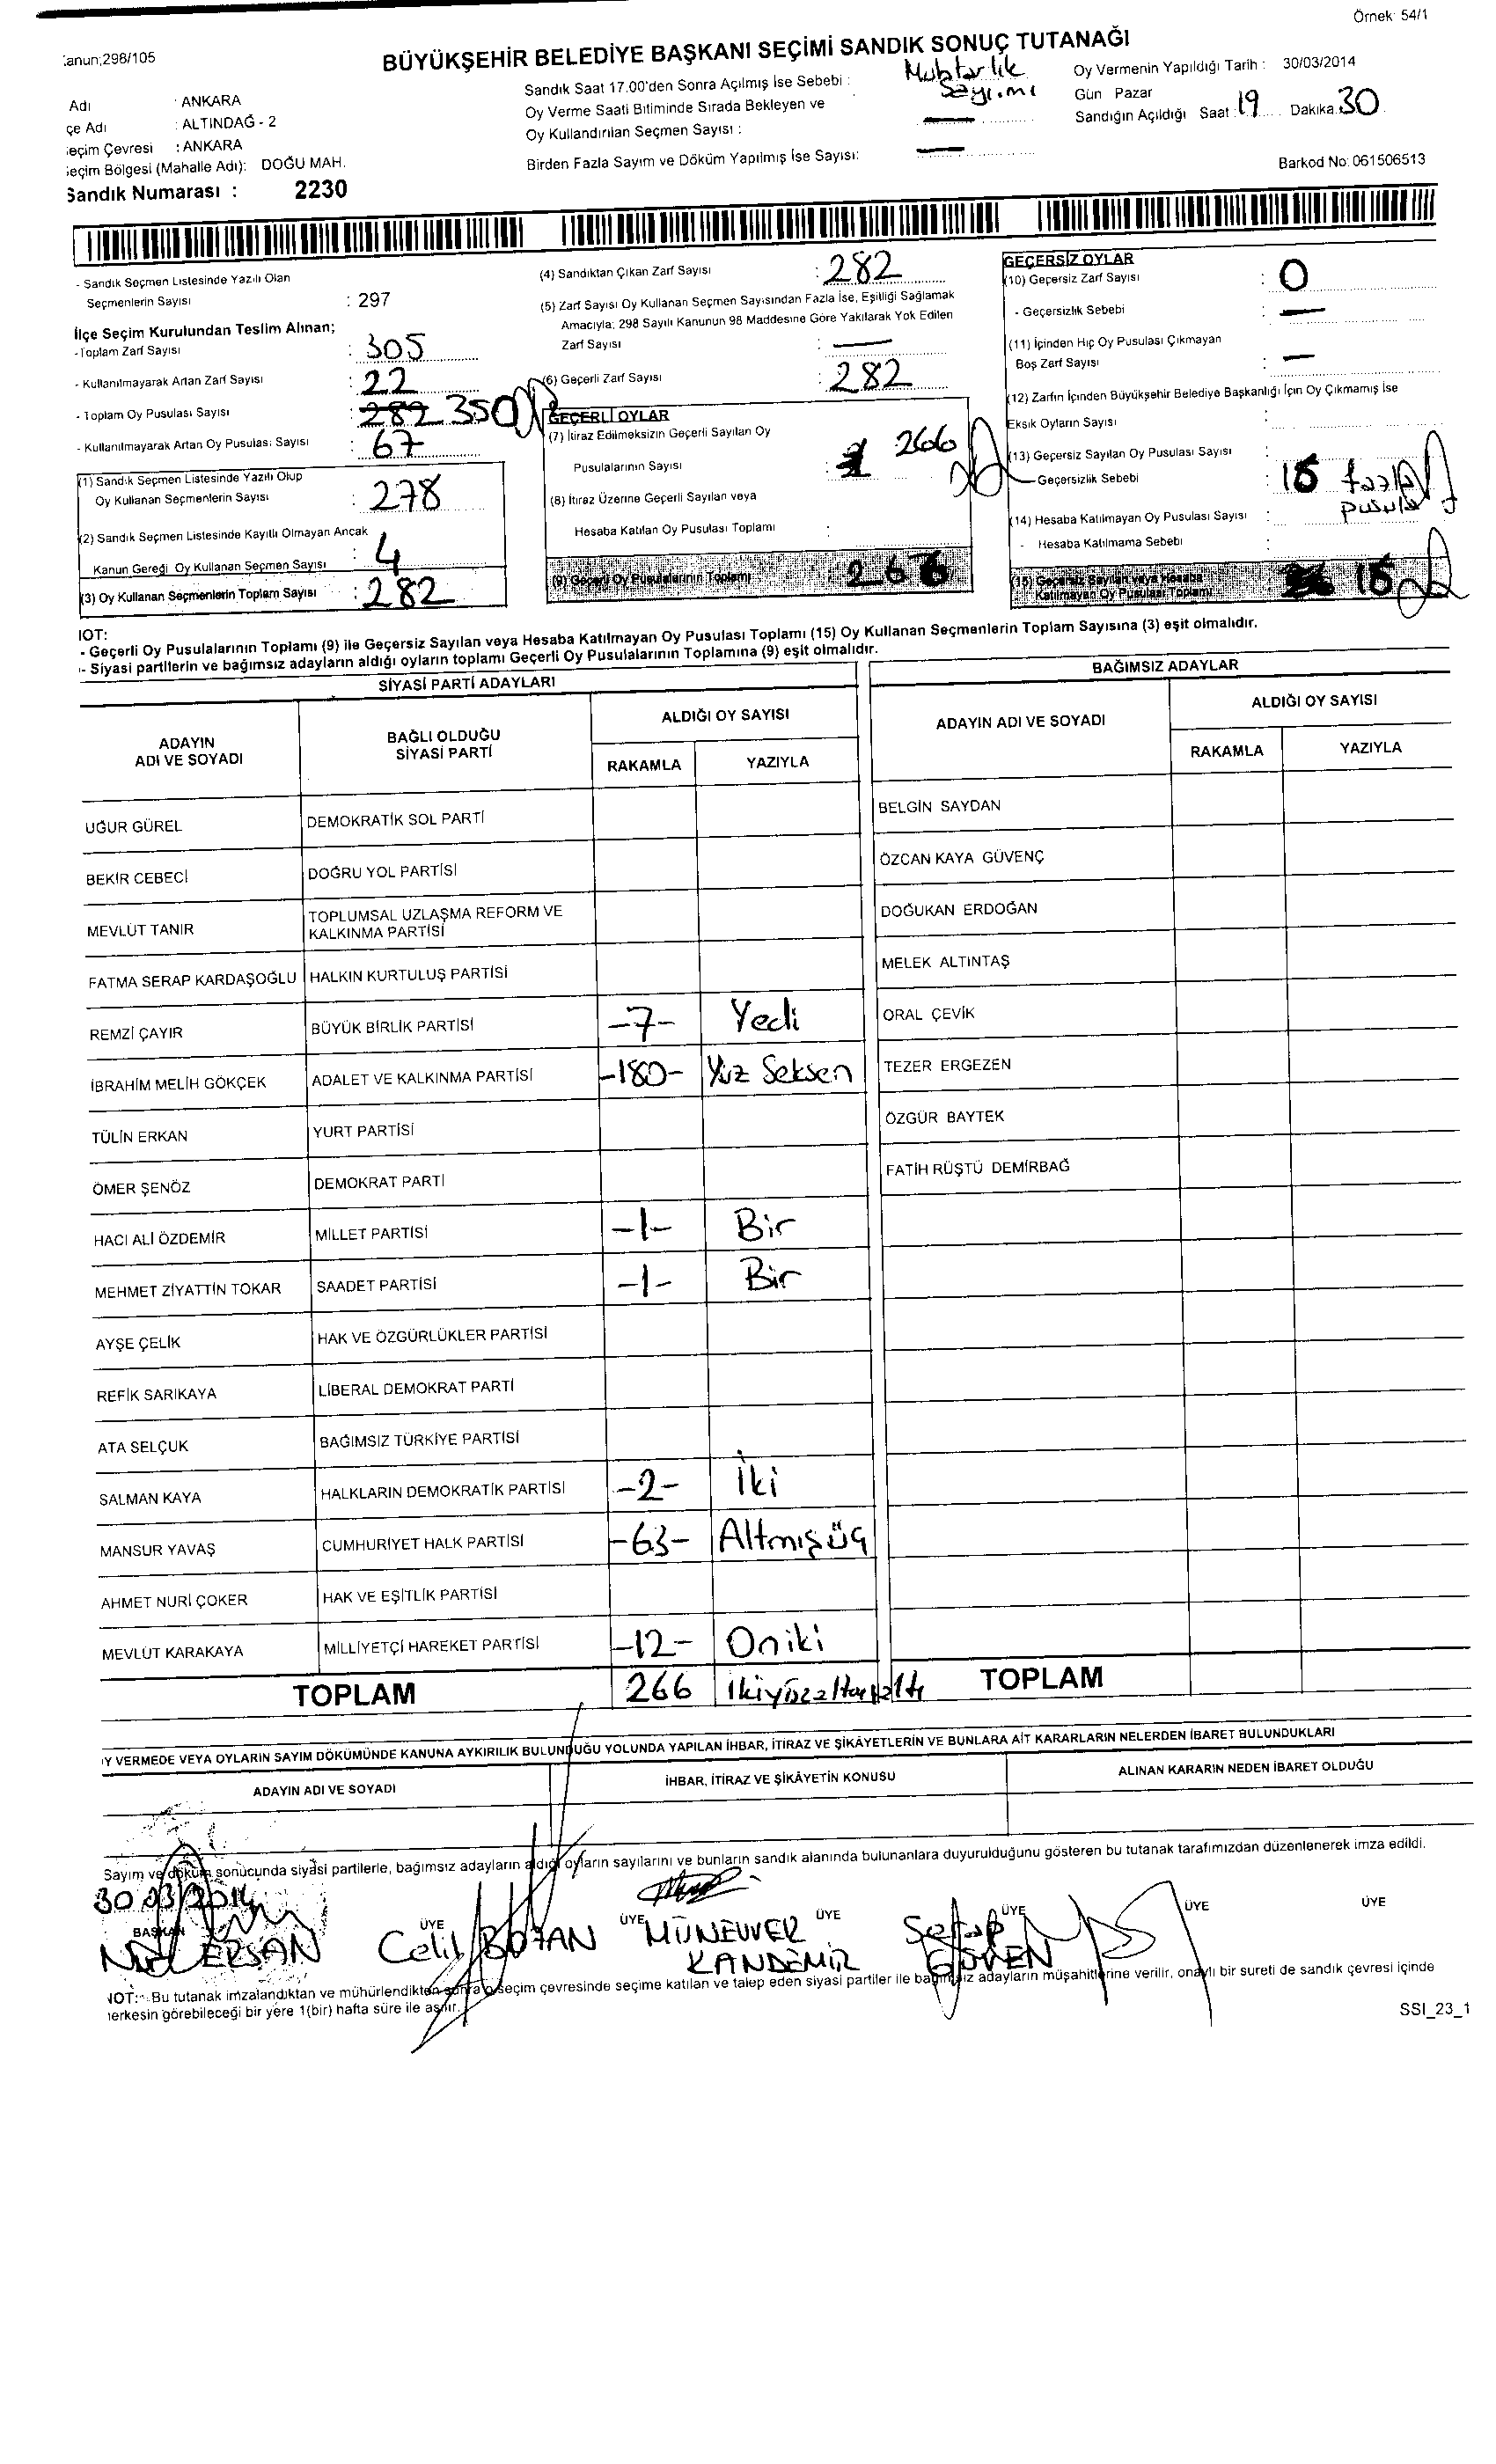 Örnek: 54/1
:anun;298/105
BÜYÜKŞEHİR BELEDİYE BAŞKANI SEÇİMİ SANDIK SONUÇ TUTANAĞI
Adı : ANKARA
çe Adı : ALTINDAĞ - 2
eçim Çevresi : ANKARA
eçim Bölgesi (Mahalle Adı): DOĞU MAH.
Sandık Numarası : 2230
Sandık Saat 17.00'den Sonra Açılmış İse Sebebi : Muhtarlık Sayımı
Oy Verme Saati Bitiminde Sırada Bekleyen ve
Oy Kullandırılan Seçmen Sayısı : —
Birden Fazla Sayım ve Döküm Yapılmış İse Sayısı: —
Oy Vermenin Yapıldığı Tarih : 30/03/2014
Gün Pazar
Sandığın Açıldığı Saat : 19 Dakika 30
Barkod No: 061506513
- Sandık Seçmen Listesinde Yazılı Olan
Seçmenlerin Sayısı : 297
İlçe Seçim Kurulundan Teslim Alınan;
-Toplam Zarf Sayısı : 305
- Kullanılmayarak Artan Zarf Sayısı : 22
- Toplam Oy Pusulası Sayısı : 282 350
- Kullanılmayarak Artan Oy Pusulası Sayısı : 67
(1) Sandık Seçmen Listesinde Yazılı Olup
Oy Kullanan Seçmenlerin Sayısı : 278
(2) Sandık Seçmen Listesinde Kayıtlı Olmayan Ancak
Kanun Gereği Oy Kullanan Seçmen Sayısı : 4
(3) Oy Kullanan Seçmenlerin Toplam Sayısı : 282
(4) Sandıktan Çıkan Zarf Sayısı : 282
(5) Zarf Sayısı Oy Kullanan Seçmen Sayısından Fazla İse, Eşitliği Sağlamak
Amacıyla; 298 Sayılı Kanunun 98 Maddesine Göre Yakılarak Yok Edilen
Zarf Sayısı : —
(6) Geçerli Zarf Sayısı : 282
GEÇERLİ OYLAR
(7) İtiraz Edilmeksizin Geçerli Sayılan Oy
Pusulalarının Sayısı : 266
(8) İtiraz Üzerine Geçerli Sayılan veya
Hesaba Katılan Oy Pusulası Toplamı :
(9) Geçerli Oy Pusulalarının Toplamı : 266
GEÇERSİZ OYLAR
(10) Geçersiz Zarf Sayısı : 0
- Geçersizlik Sebebi : —
(11) İçinden Hiç Oy Pusulası Çıkmayan
Boş Zarf Sayısı : —
(12) Zarfın İçinden Büyükşehir Belediye Başkanlığı İçin Oy Çıkmamış İse
Eksik Oyların Sayısı :
(13) Geçersiz Sayılan Oy Pusulası Sayısı :
- Geçersizlik Sebebi : fazla pusula
(14) Hesaba Katılmayan Oy Pusulası Sayısı :
- Hesaba Katılmama Sebebi :
(15) Geçersiz Sayılan veya Hesaba
Katılmayan Oy Pusulası Toplamı
IOT:
- Geçerli Oy Pusulalarının Toplamı (9) ile Geçersiz Sayılan veya Hesaba Katılmayan Oy Pusulası Toplamı (15) Oy Kullanan Seçmenlerin Toplam Sayısına (3) eşit olmalıdır.
- Siyasi partilerin ve bağımsız adayların aldığı oyların toplamı Geçerli Oy Pusulalarının Toplamına (9) eşit olmalıdır.
SİYASİ PARTİ ADAYLARI
BAĞIMSIZ ADAYLAR
ADAYIN ADI VE SOYADI
BAĞLI OLDUĞU SİYASİ PARTİ
ALDIĞI OY SAYISI
RAKAMLA YAZIYLA
ADAYIN ADI VE SOYADI
ALDIĞI OY SAYISI
RAKAMLA YAZIYLA
UĞUR GÜREL DEMOKRATİK SOL PARTİ BELGİN SAYDAN
BEKİR CEBECİ DOĞRU YOL PARTİSİ ÖZCAN KAYA GÜVENÇ
MEVLÜT TANIR TOPLUMSAL UZLAŞMA REFORM VE KALKINMA PARTİSİ DOĞUKAN ERDOĞAN
FATMA SERAP KARDAŞOĞLU HALKIN KURTULUŞ PARTİSİ MELEK ALTINTAŞ
REMZİ ÇAYIR BÜYÜK BİRLİK PARTİSİ -7- Yedi ORAL ÇEVİK
İBRAHİM MELİH GÖKÇEK ADALET VE KALKINMA PARTİSİ -180- Yüz Seksen TEZER ERGEZEN
TÜLİN ERKAN YURT PARTİSİ ÖZGÜR BAYTEK
ÖMER ŞENÖZ DEMOKRAT PARTİ FATİH RÜŞTÜ DEMİRBAĞ
HACI ALİ ÖZDEMİR MİLLET PARTİSİ -1- Bir
MEHMET ZİYATTİN TOKAR SAADET PARTİSİ -1- Bir
AYŞE ÇELİK HAK VE ÖZGÜRLÜKLER PARTİSİ
REFİK SARIKAYA LİBERAL DEMOKRAT PARTİ
ATA SELÇUK BAĞIMSIZ TÜRKİYE PARTİSİ
SALMAN KAYA HALKLARIN DEMOKRATİK PARTİSİ -2- İki
MANSUR YAVAŞ CUMHURİYET HALK PARTİSİ -63- Altmışüç
AHMET NURİ ÇOKER HAK VE EŞİTLİK PARTİSİ
MEVLÜT KARAKAYA MİLLİYETÇİ HAREKET PARTİSİ -12- Oniki
TOPLAM 266 İkiyüzaltmışaltı TOPLAM
IY VERMEDE VEYA OYLARIN SAYIM DÖKÜMÜNDE KANUNA AYKIRILIK BULUNDUĞU YOLUNDA YAPILAN İHBAR, İTİRAZ VE ŞİKÂYETLERİN VE BUNLARA AİT KARARLARIN NELERDEN İBARET BULUNDUKLARI
ADAYIN ADI VE SOYADI İHBAR, İTİRAZ VE ŞİKÂYETİN KONUSU ALINAN KARARIN NEDEN İBARET OLDUĞU
Sayım ve döküm sonucunda siyasi partilerle, bağımsız adayların aldığı oyların sayılarını ve bunların sandık alanında bulunanlara duyurulduğunu gösteren bu tutanak tarafımızdan düzenlenerek imza edildi.
30.03/2014
BAŞKAN ÜYE ÜYE ÜYE ÜYE ÜYE ÜYE
ERSAN Celil BOZAN MÜNEVVER KANDEMİR Serap GÜVEN
IOT: Bu tutanak imzalandıktan ve mühürlendikten sonra o seçim çevresinde seçime katılan ve talep eden siyasi partiler ile bağımsız adayların müşahitlerine verilir, onaylı bir sureti de sandık çevresi içinde
ıerkesin görebileceği bir yere 1(bir) hafta süre ile asılır.
SSI_23_1